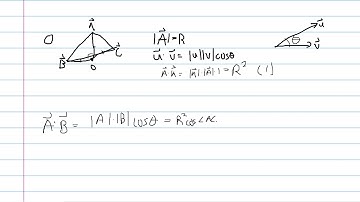 O A⃗ B⃗ C⃗ O
|A⃗|=R
u⃗·v⃗=|u||v|cosθ
A⃗·A⃗=|A⃗|·|A⃗|·1=R² (1)
θ u⃗ v⃗
A⃗·B⃗ = |A|·|B|cosθ = R²cos